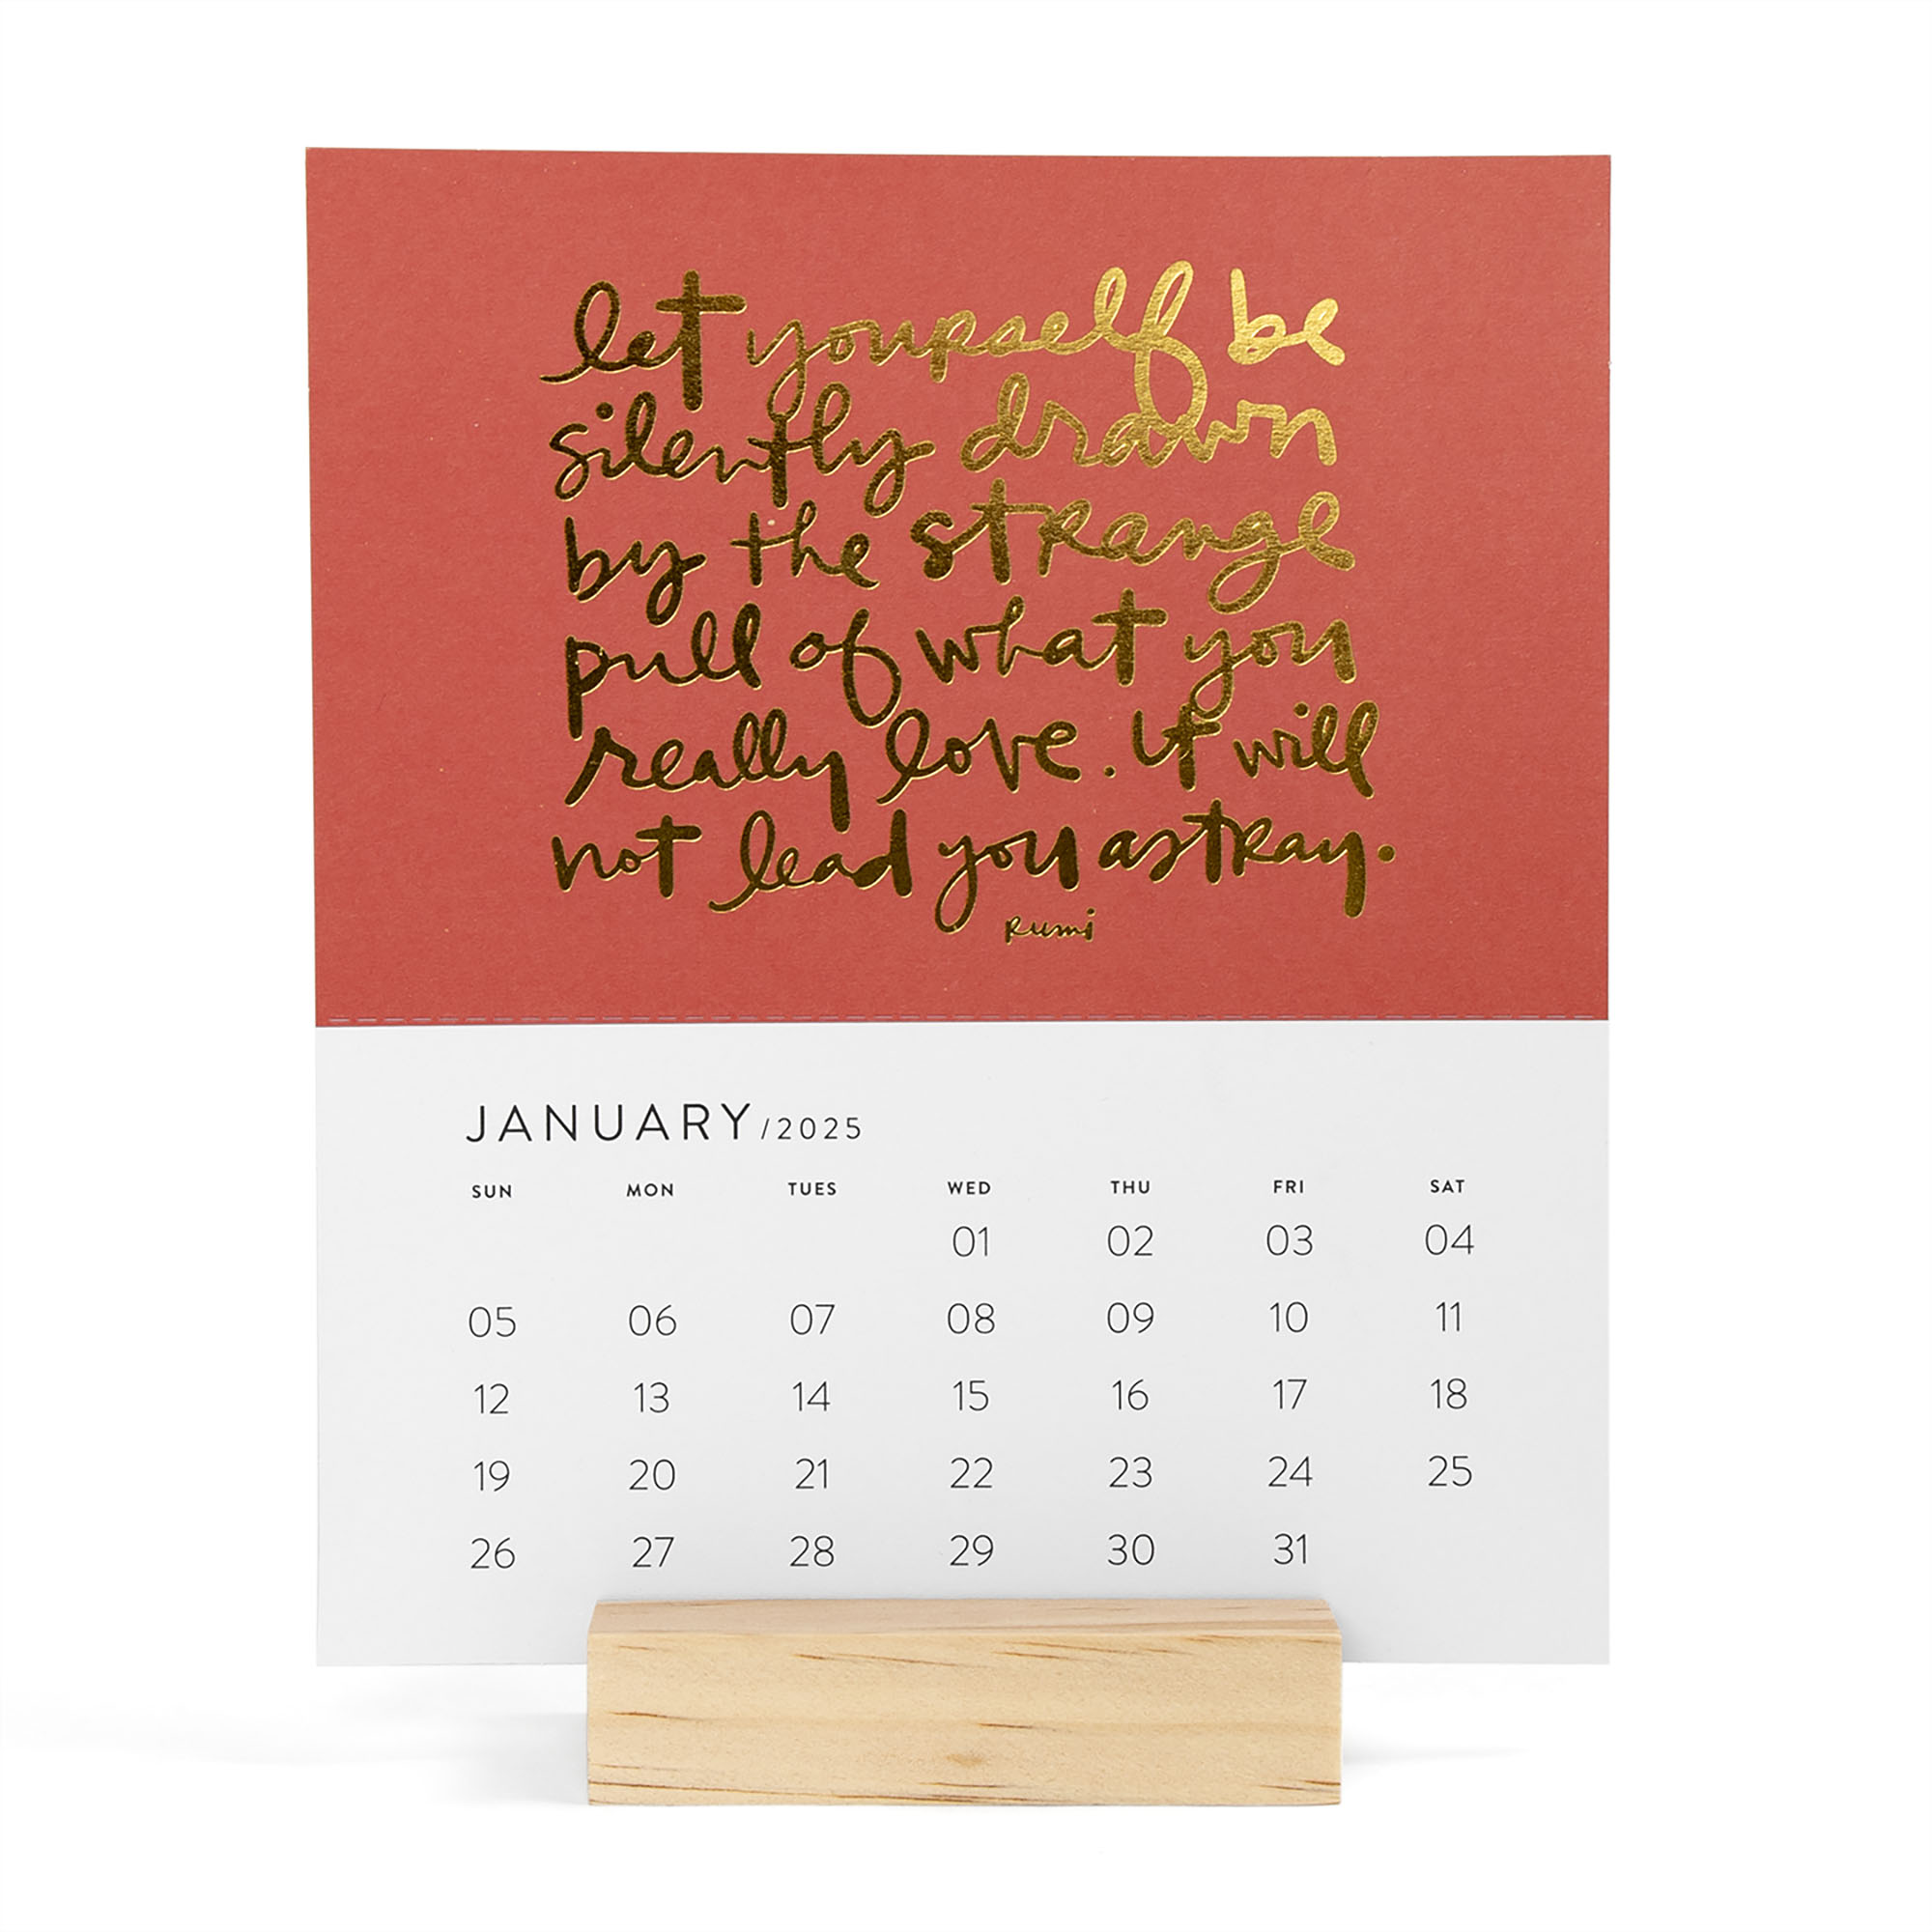 let yourself be
silently drawn
by the strange
pull of what you
really love. it will
not lead you astray.
Rumi
JANUARY/2025
SUN MON TUES WED THU FRI SAT
01 02 03 04
05 06 07 08 09 10 11
12 13 14 15 16 17 18
19 20 21 22 23 24 25
26 27 28 29 30 31